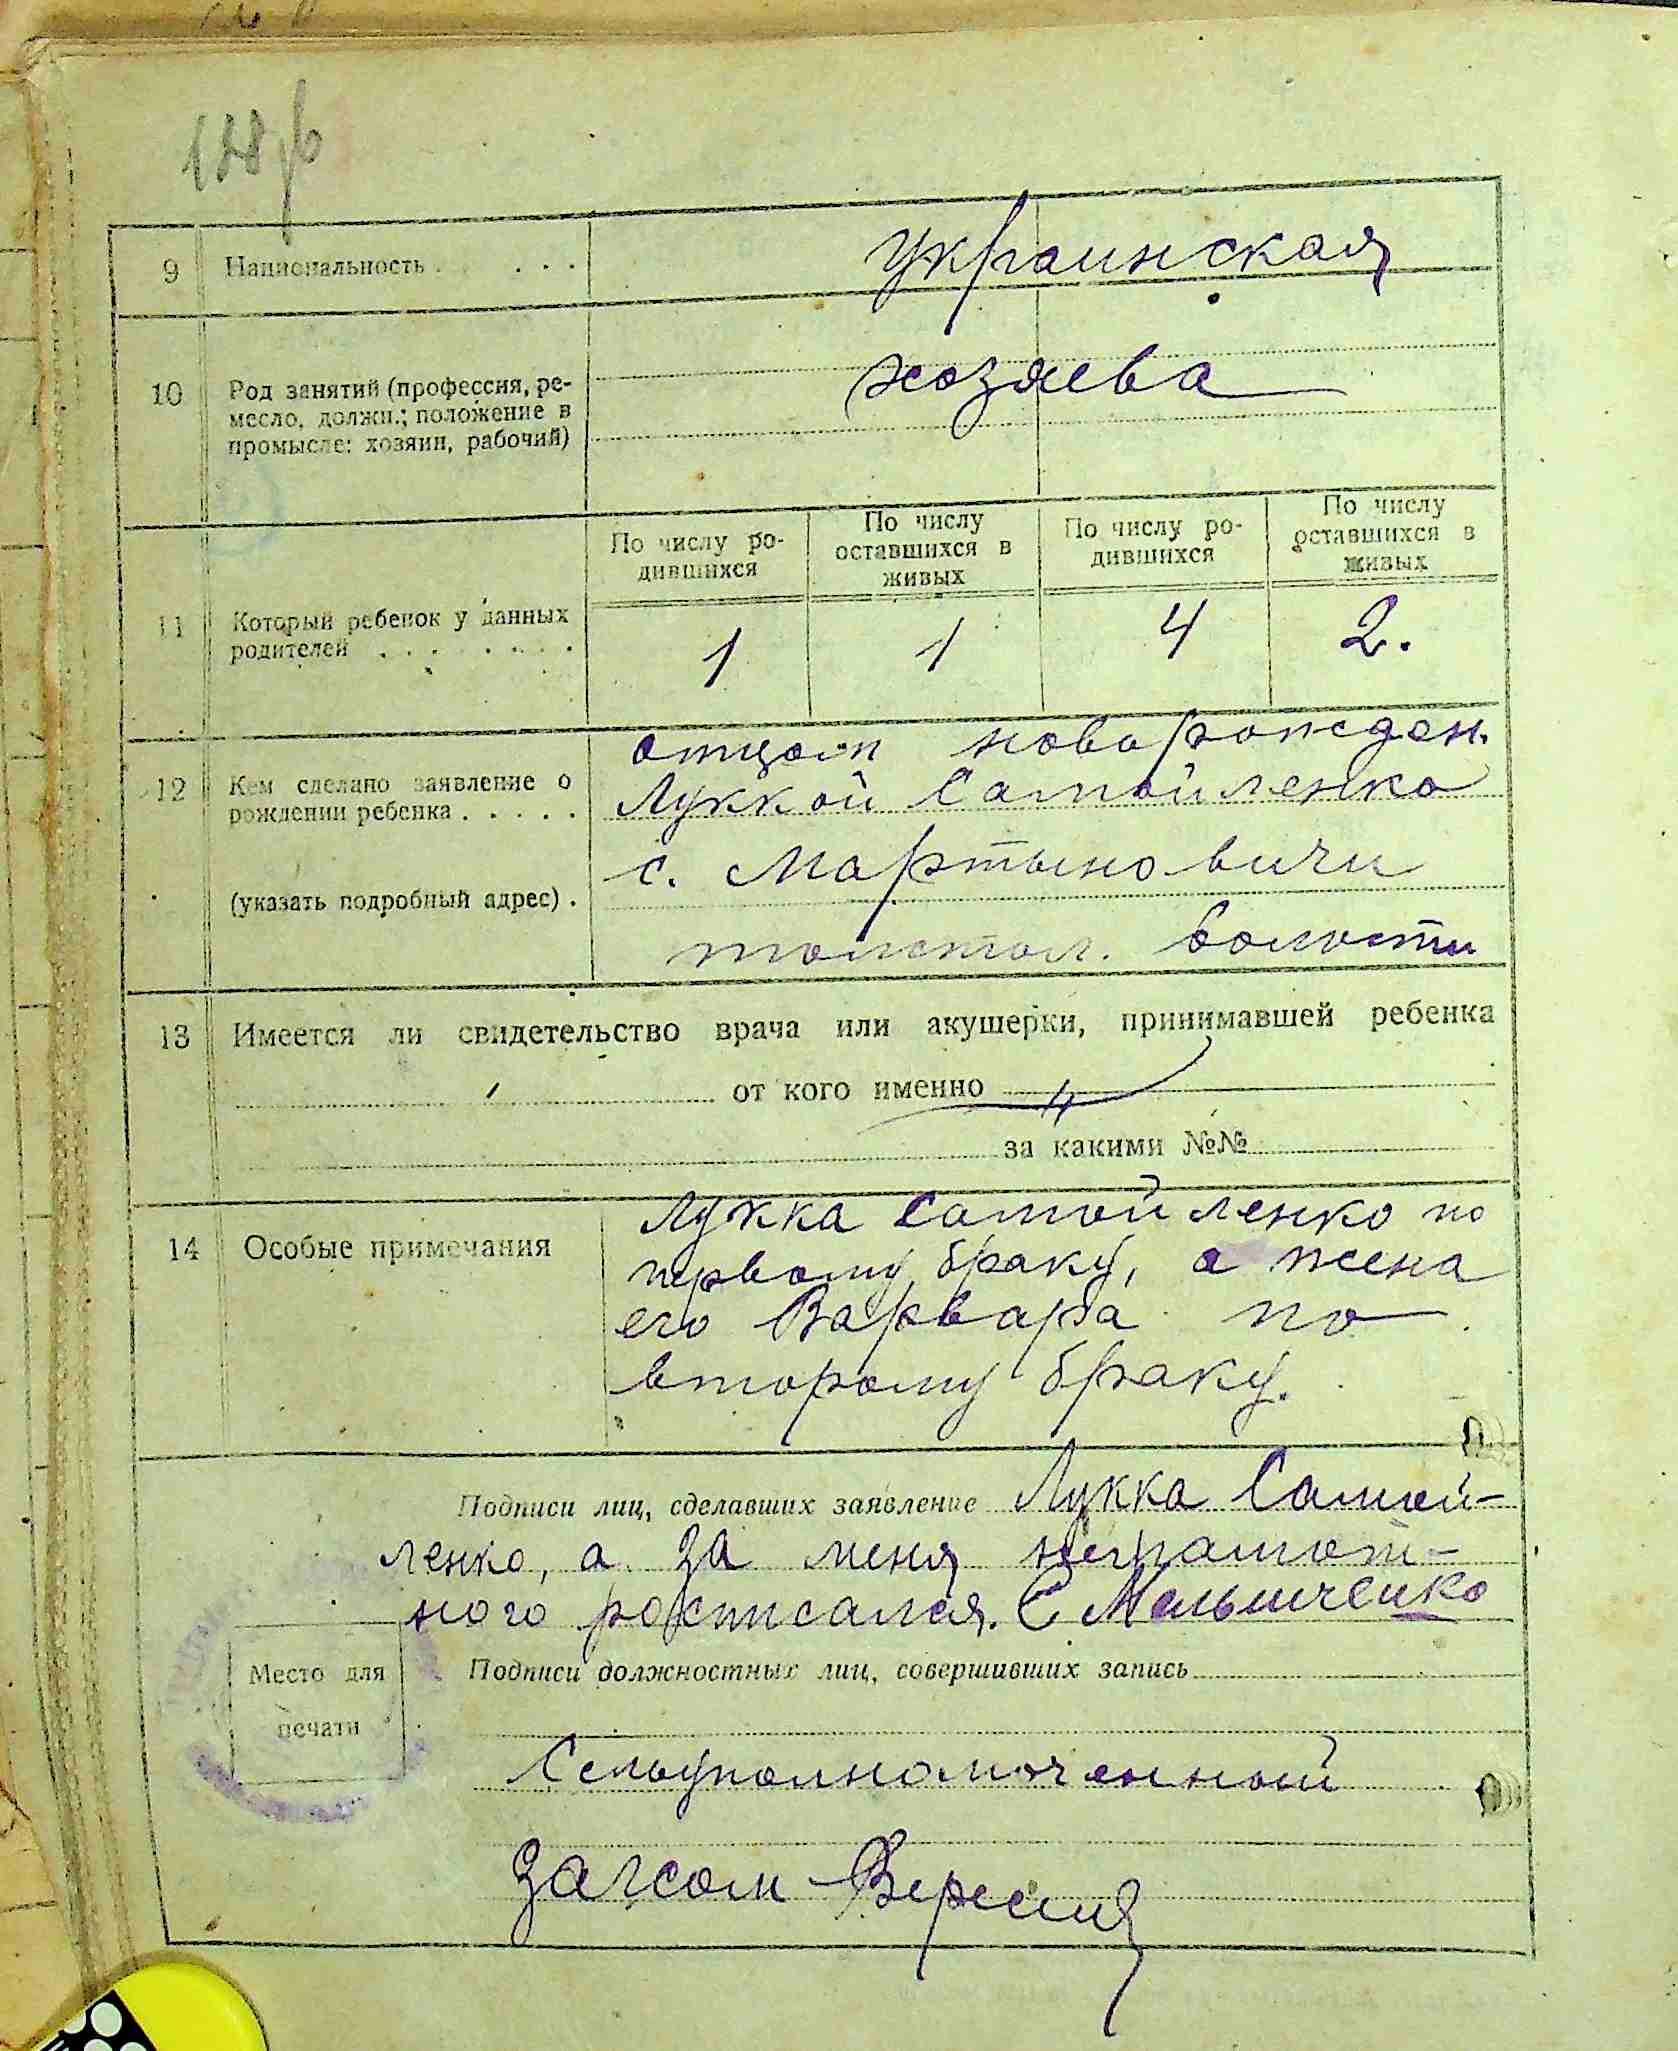 9 Национальность . . . . украинская
10 Род занятий (профессия, ре-
месло, должн.; положение в
промысле: хозяин, рабочий)
хозяева
По числу ро-
дившихся
По числу
оставшихся в
живых
По числу ро-
дившихся
По числу
оставшихся в
живых
11 Который ребенок у данных
родителей . . . . . . .
1 1 4 2.
12 Кем сделано заявление о
рождении ребенка . . . . .
(указать подробный адрес) .
отцом новорожден.
Луккой Самойленко
с. Мартыновичи
толстол. волости
13 Имеется ли свидетельство врача или акушерки, принимавшей ребенка
от кого именно
за какими №№
14 Особые примечания
Лукка Самойленко по
первому браку, а жена
его Варвара по
второму браку.
Подписи лиц, сделавших заявление Лукка Самой-
ленко, а за меня неграмот-
ного росписался. С Мельниченко
Место для
печати
Подписи должностных лиц, совершивших запись
Сельуполномоченный
загсом